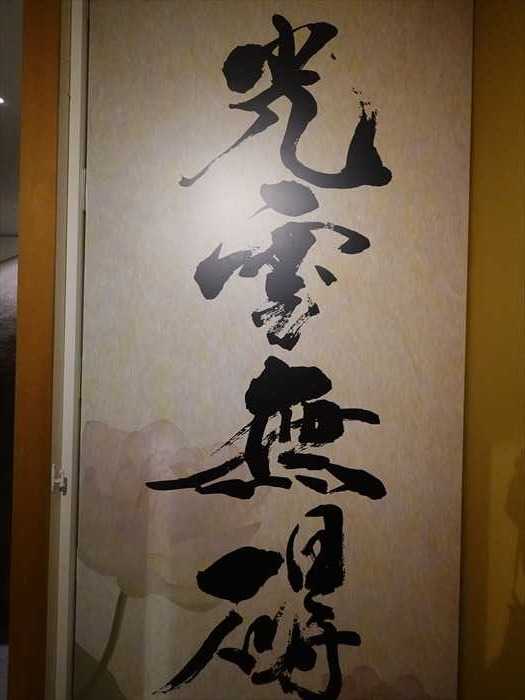 光雲無碍